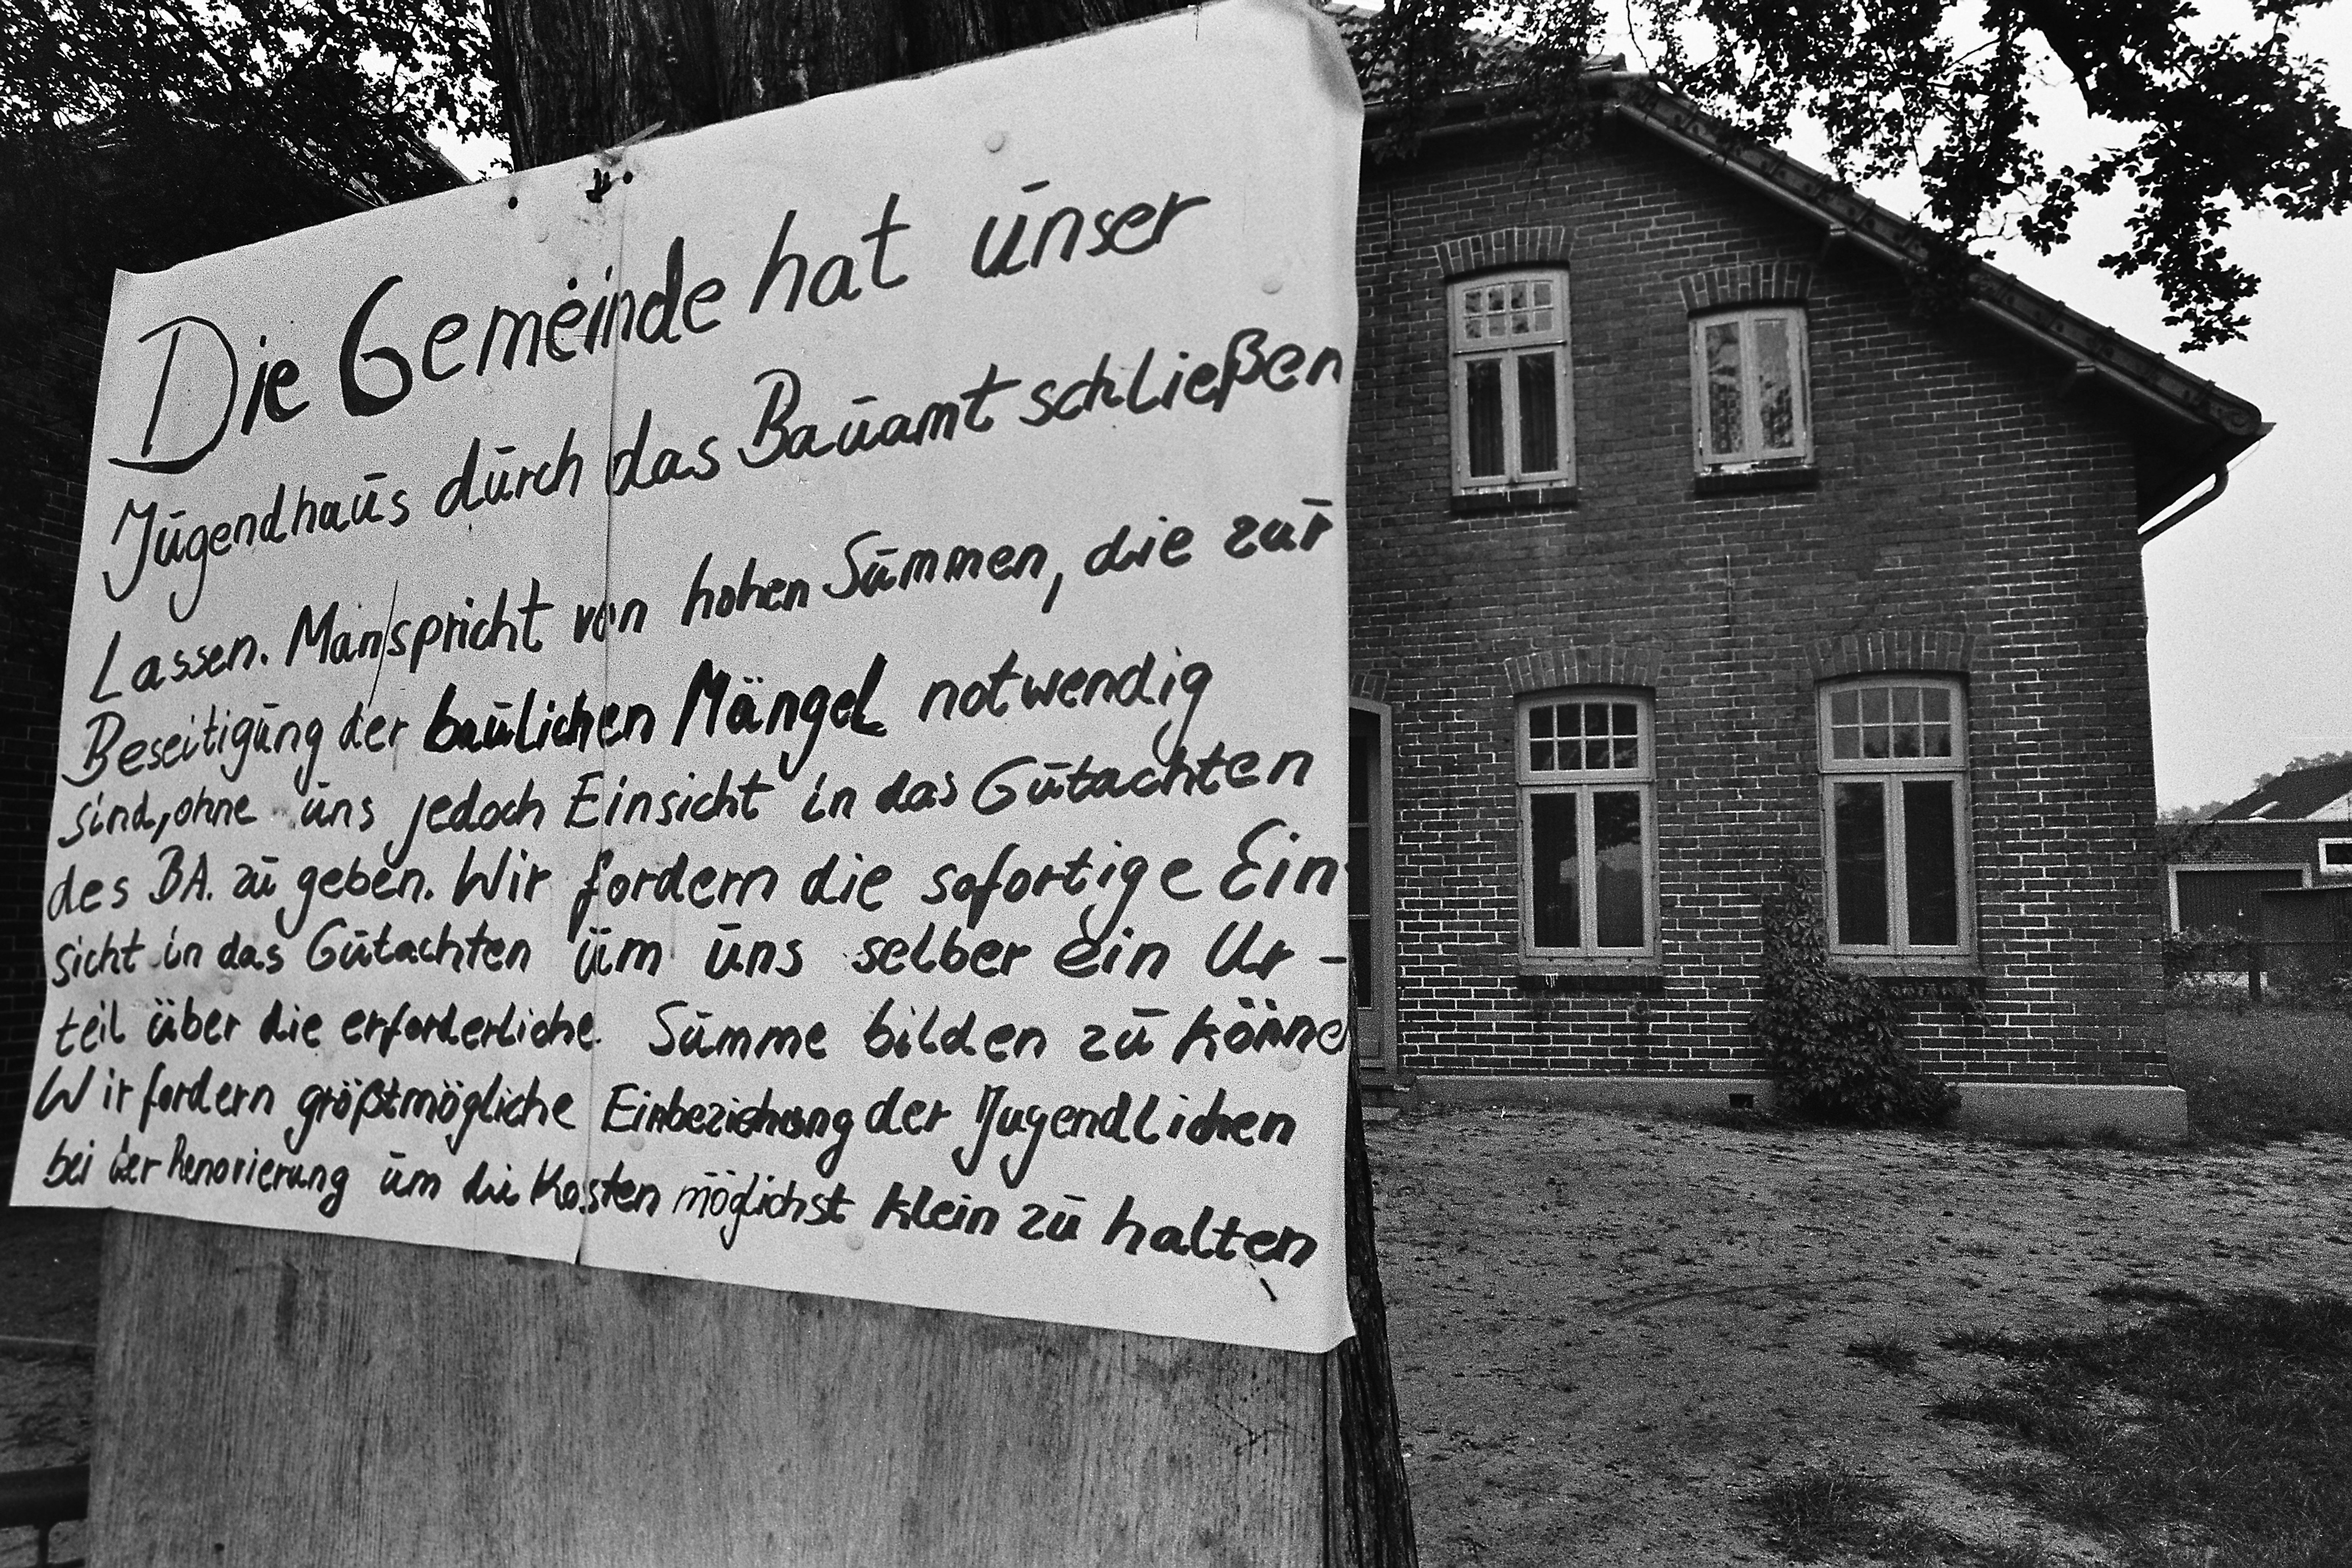 Die Gemeinde hat unser
Jugendhaus durch das Bauamt schließen
Lassen. Man spricht von hohen Summen, die zur
Beseitigung der baulichen Mängel notwendig
sind, ohne uns jedoch Einsicht in das Gutachten
des BA. zu geben. Wir fordern die sofortige Ein-
sicht in das Gutachten um uns selber ein Ur-
teil über die erforderliche Summe bilden zu könne
Wir fordern größtmögliche Einbeziehung der Jugendlichen
bei der Renovierung um die Kosten möglichst klein zu halten